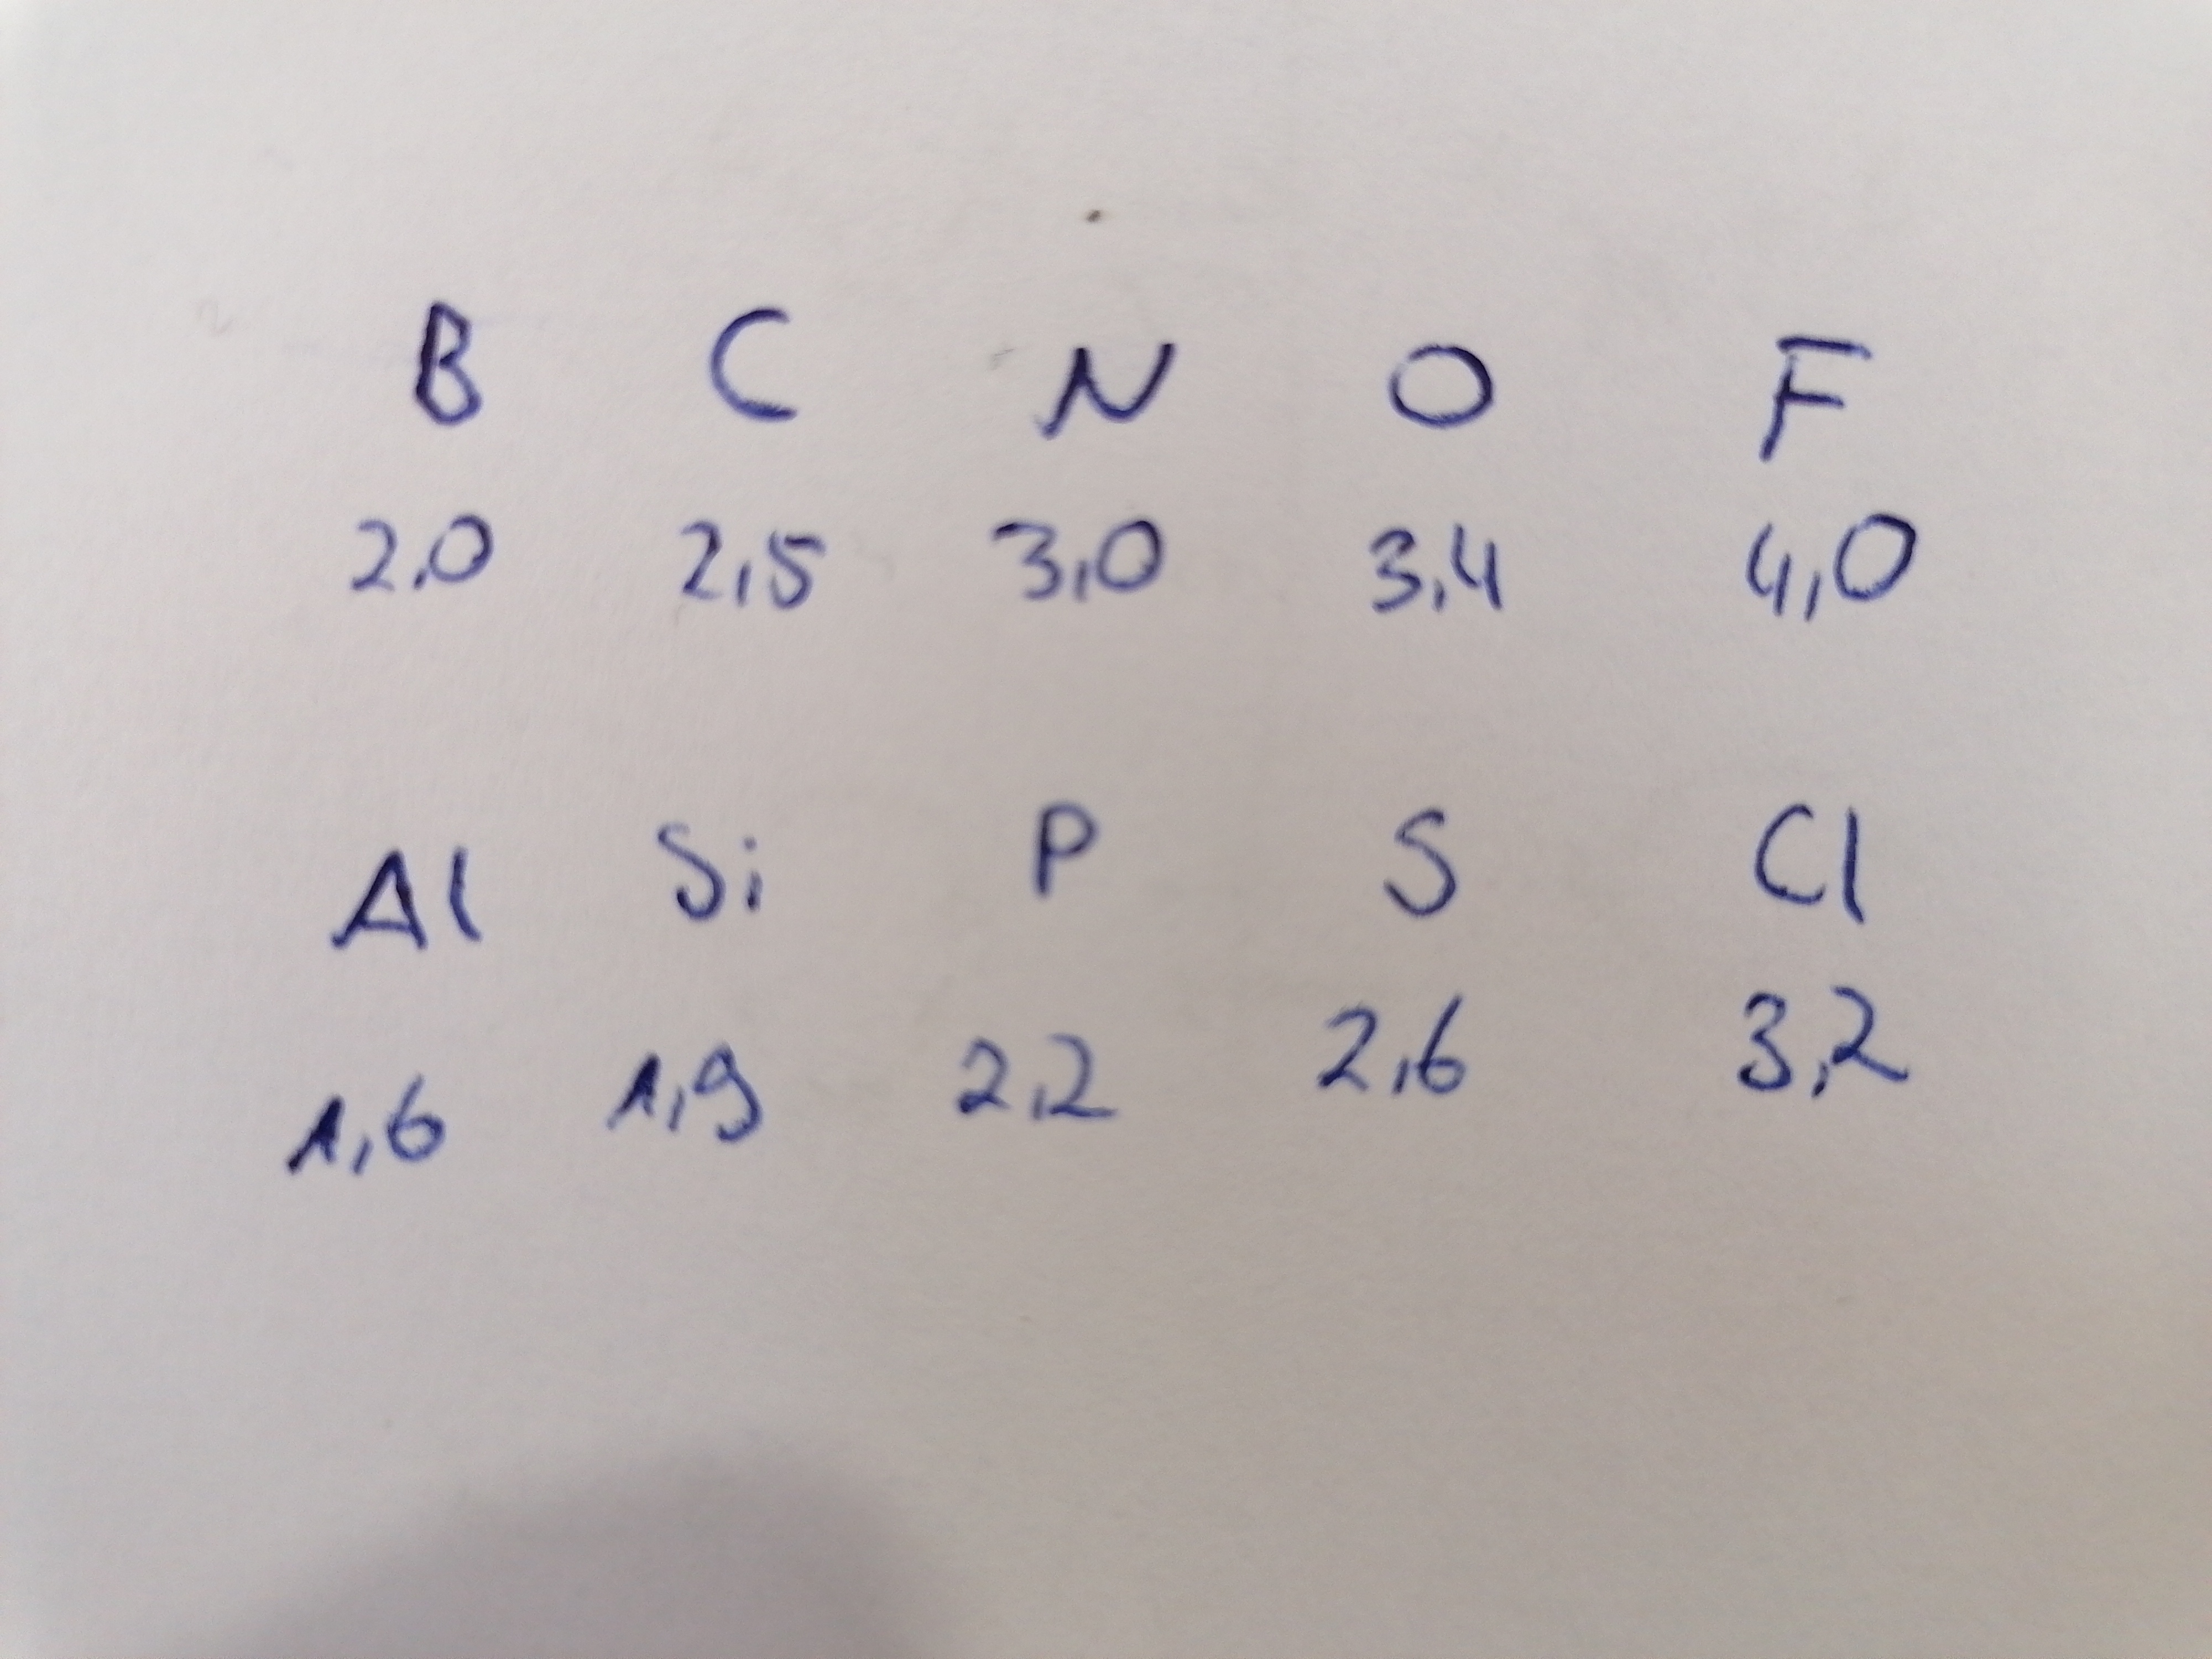 B C N O F
2,0 2,5 3,0 3,4 4,0
Al Si P S Cl
1,6 1,9 2,2 2,6 3,2